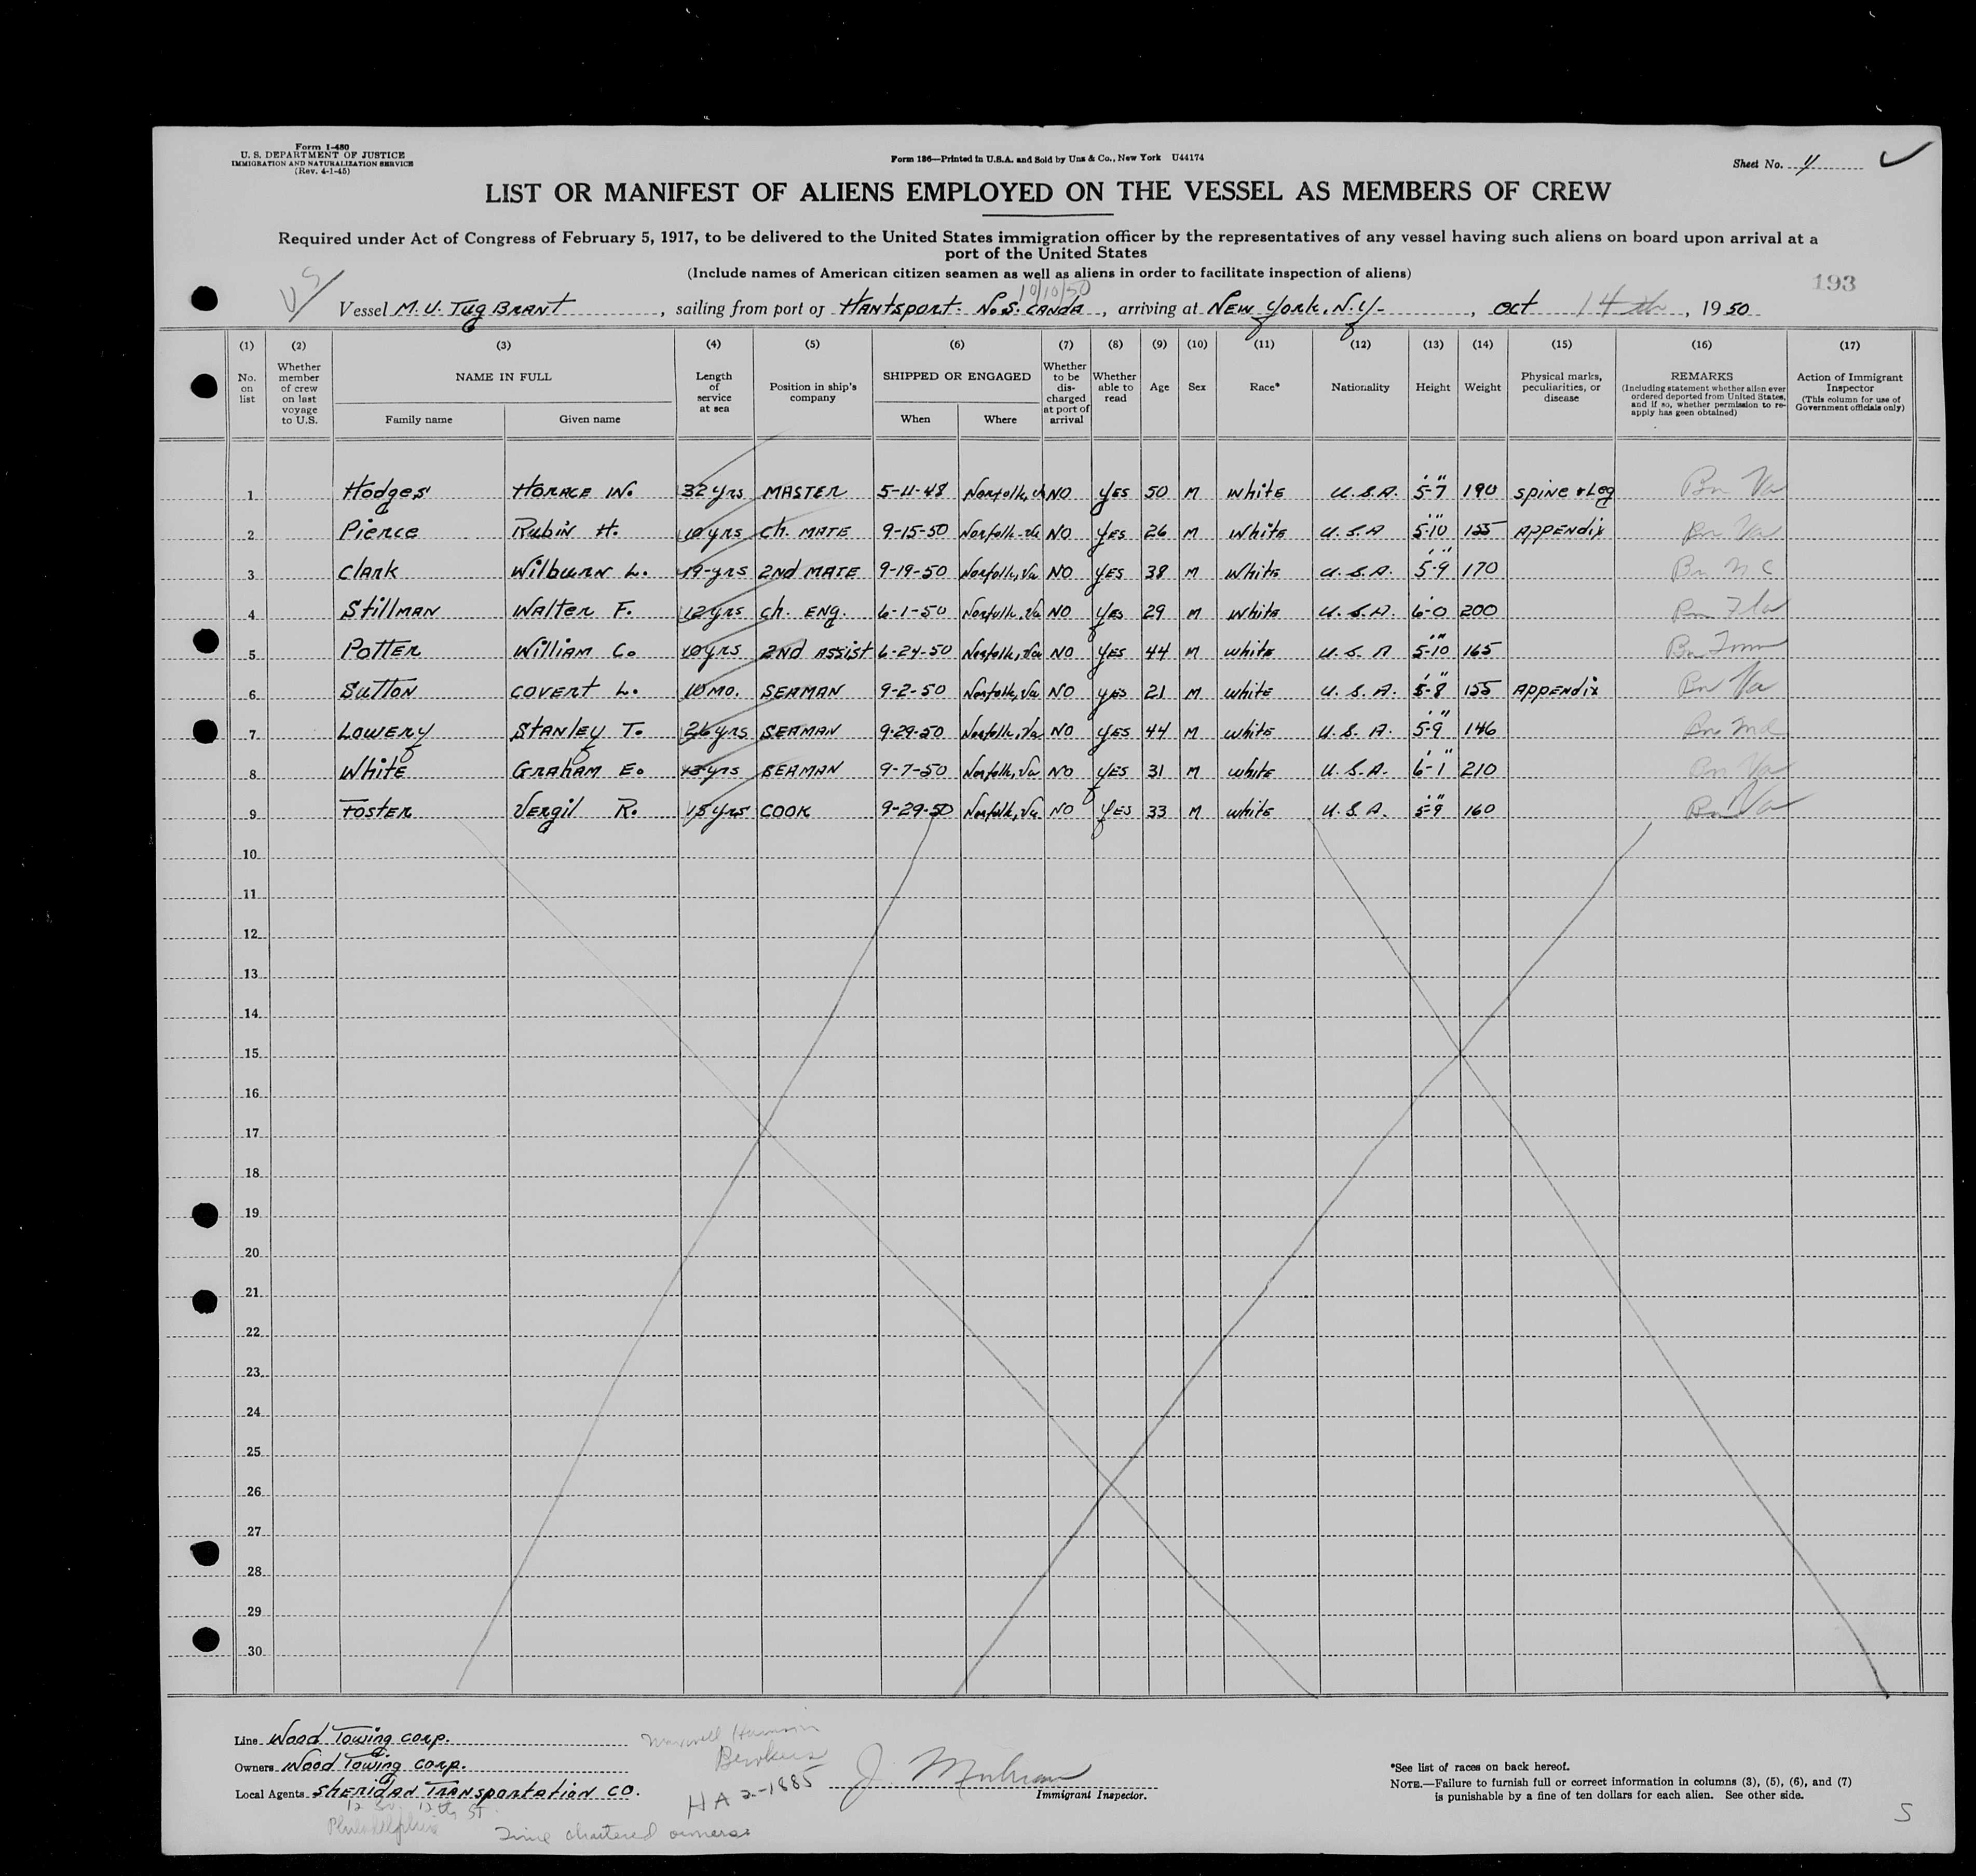 Form I-480
U. S. DEPARTMENT OF JUSTICE
IMMIGRATION AND NATURALIZATION SERVICE
(Rev. 4-1-45)
Form 186—Printed in U.S.A. and Sold by Unz & Co., New York U44174
Sheet No.
LIST OR MANIFEST OF ALIENS EMPLOYED ON THE VESSEL AS MEMBERS OF CREW
Required under Act of Congress of February 5, 1917, to be delivered to the United States immigration officer by the representatives of any vessel having such aliens on board upon arrival at a
port of the United States
(Include names of American citizen seamen as well as aliens in order to facilitate inspection of aliens)
193
10/10/50
Vessel M.V. Tug BRANT, sailing from port of HANTSPORT. N.S. CANDA, arriving at NEW YORK, N.Y., Oct 14th, 1950
(1) (2) (3) (4) (5) (6) (7) (8) (9) (10) (11) (12) (13) (14) (15) (16) (17)
No. on list
Whether member of crew on last voyage to U.S.
NAME IN FULL
Family name
Given name
Length of service at sea
Position in ship's company
SHIPPED OR ENGAGED
When
Where
Whether to be discharged at port of arrival
Whether able to read
Age
Sex
Race*
Nationality
Height
Weight
Physical marks, peculiarities, or disease
REMARKS
(Including statement whether alien ever ordered deported from United States, and if so, whether permission to reapply has geen obtained)
Action of Immigrant Inspector
(This column for use of Government officials only)
1 Hodges HORACE W. 32 yrs MASTER 5-11-48 Norfolk, NO YES 50 M White U.S.A. 5'-7" 190 SPINE & Leg Bn Va
2 Pierce Rubin H. 10 yrs Ch. MATE 9-15-50 Norfolk-Va NO YES 26 M White U.S.A 5'10" 155 APPENDix Bn Va
3 Clark Wilburn L. 19-yrs 2nd MATE 9-19-50 Norfolk, Va NO YES 38 M White U.S.A. 5'-9" 170 Bn N C
4 StillMAN WALTER F. 12 yrs Ch. ENG. 6-1-50 Norfolk, Va NO YES 29 M White U.S.A. 6'-0 200 Bn Fla
5 POTTER WILLIAM C. 10 yrs 2ND ASSIST 6-24-50 Norfolk, Va NO YES 44 M white U.S.A 5'-10" 165 Bn Tenn
6 SUTTON COVERT L. 10 MO. SEAMAN 9-2-50 Norfolk, Va NO YES 21 M white U.S.A. 5'-8" 155 APPENDix Bn Va
7 LOWERY STANLEY T. 26 yrs SEAMAN 9-29-50 Norfolk, Va NO YES 44 M white U.S.A. 5'-9" 146 Bn Md
8 White GRAHAM E. 13 yrs SEAMAN 9-7-50 Norfolk, Va NO YES 31 M white U.S.A. 6'-1" 210 Bn Va
9 FOSTER Vergil R. 15 yrs COOK 9-29-50 Norfolk, Va NO YES 33 M white U.S.A. 5'-9" 160 Bn Va
10
11
12
13
14
15
16
17
18
19
20
21
22
23
24
25
26
27
28
29
30
Line Wood Towing CORP.
Owners Wood Towing CORP.
Local Agents SHERIDAN TRANSPORTATION CO.
12 So. 12th St
Philadelphia
Time chartered owners
HA 2-1885
Immigrant Inspector.
*See list of races on back hereof.
NOTE.—Failure to furnish full or correct information in columns (3), (5), (6), and (7)
is punishable by a fine of ten dollars for each alien. See other side.